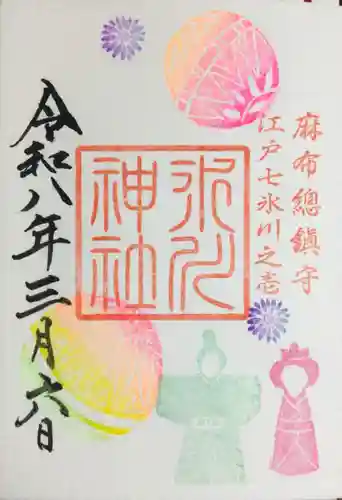 麻布總鎮守
江戸七氷川之壱
氷川
神社
令和八年三月六日